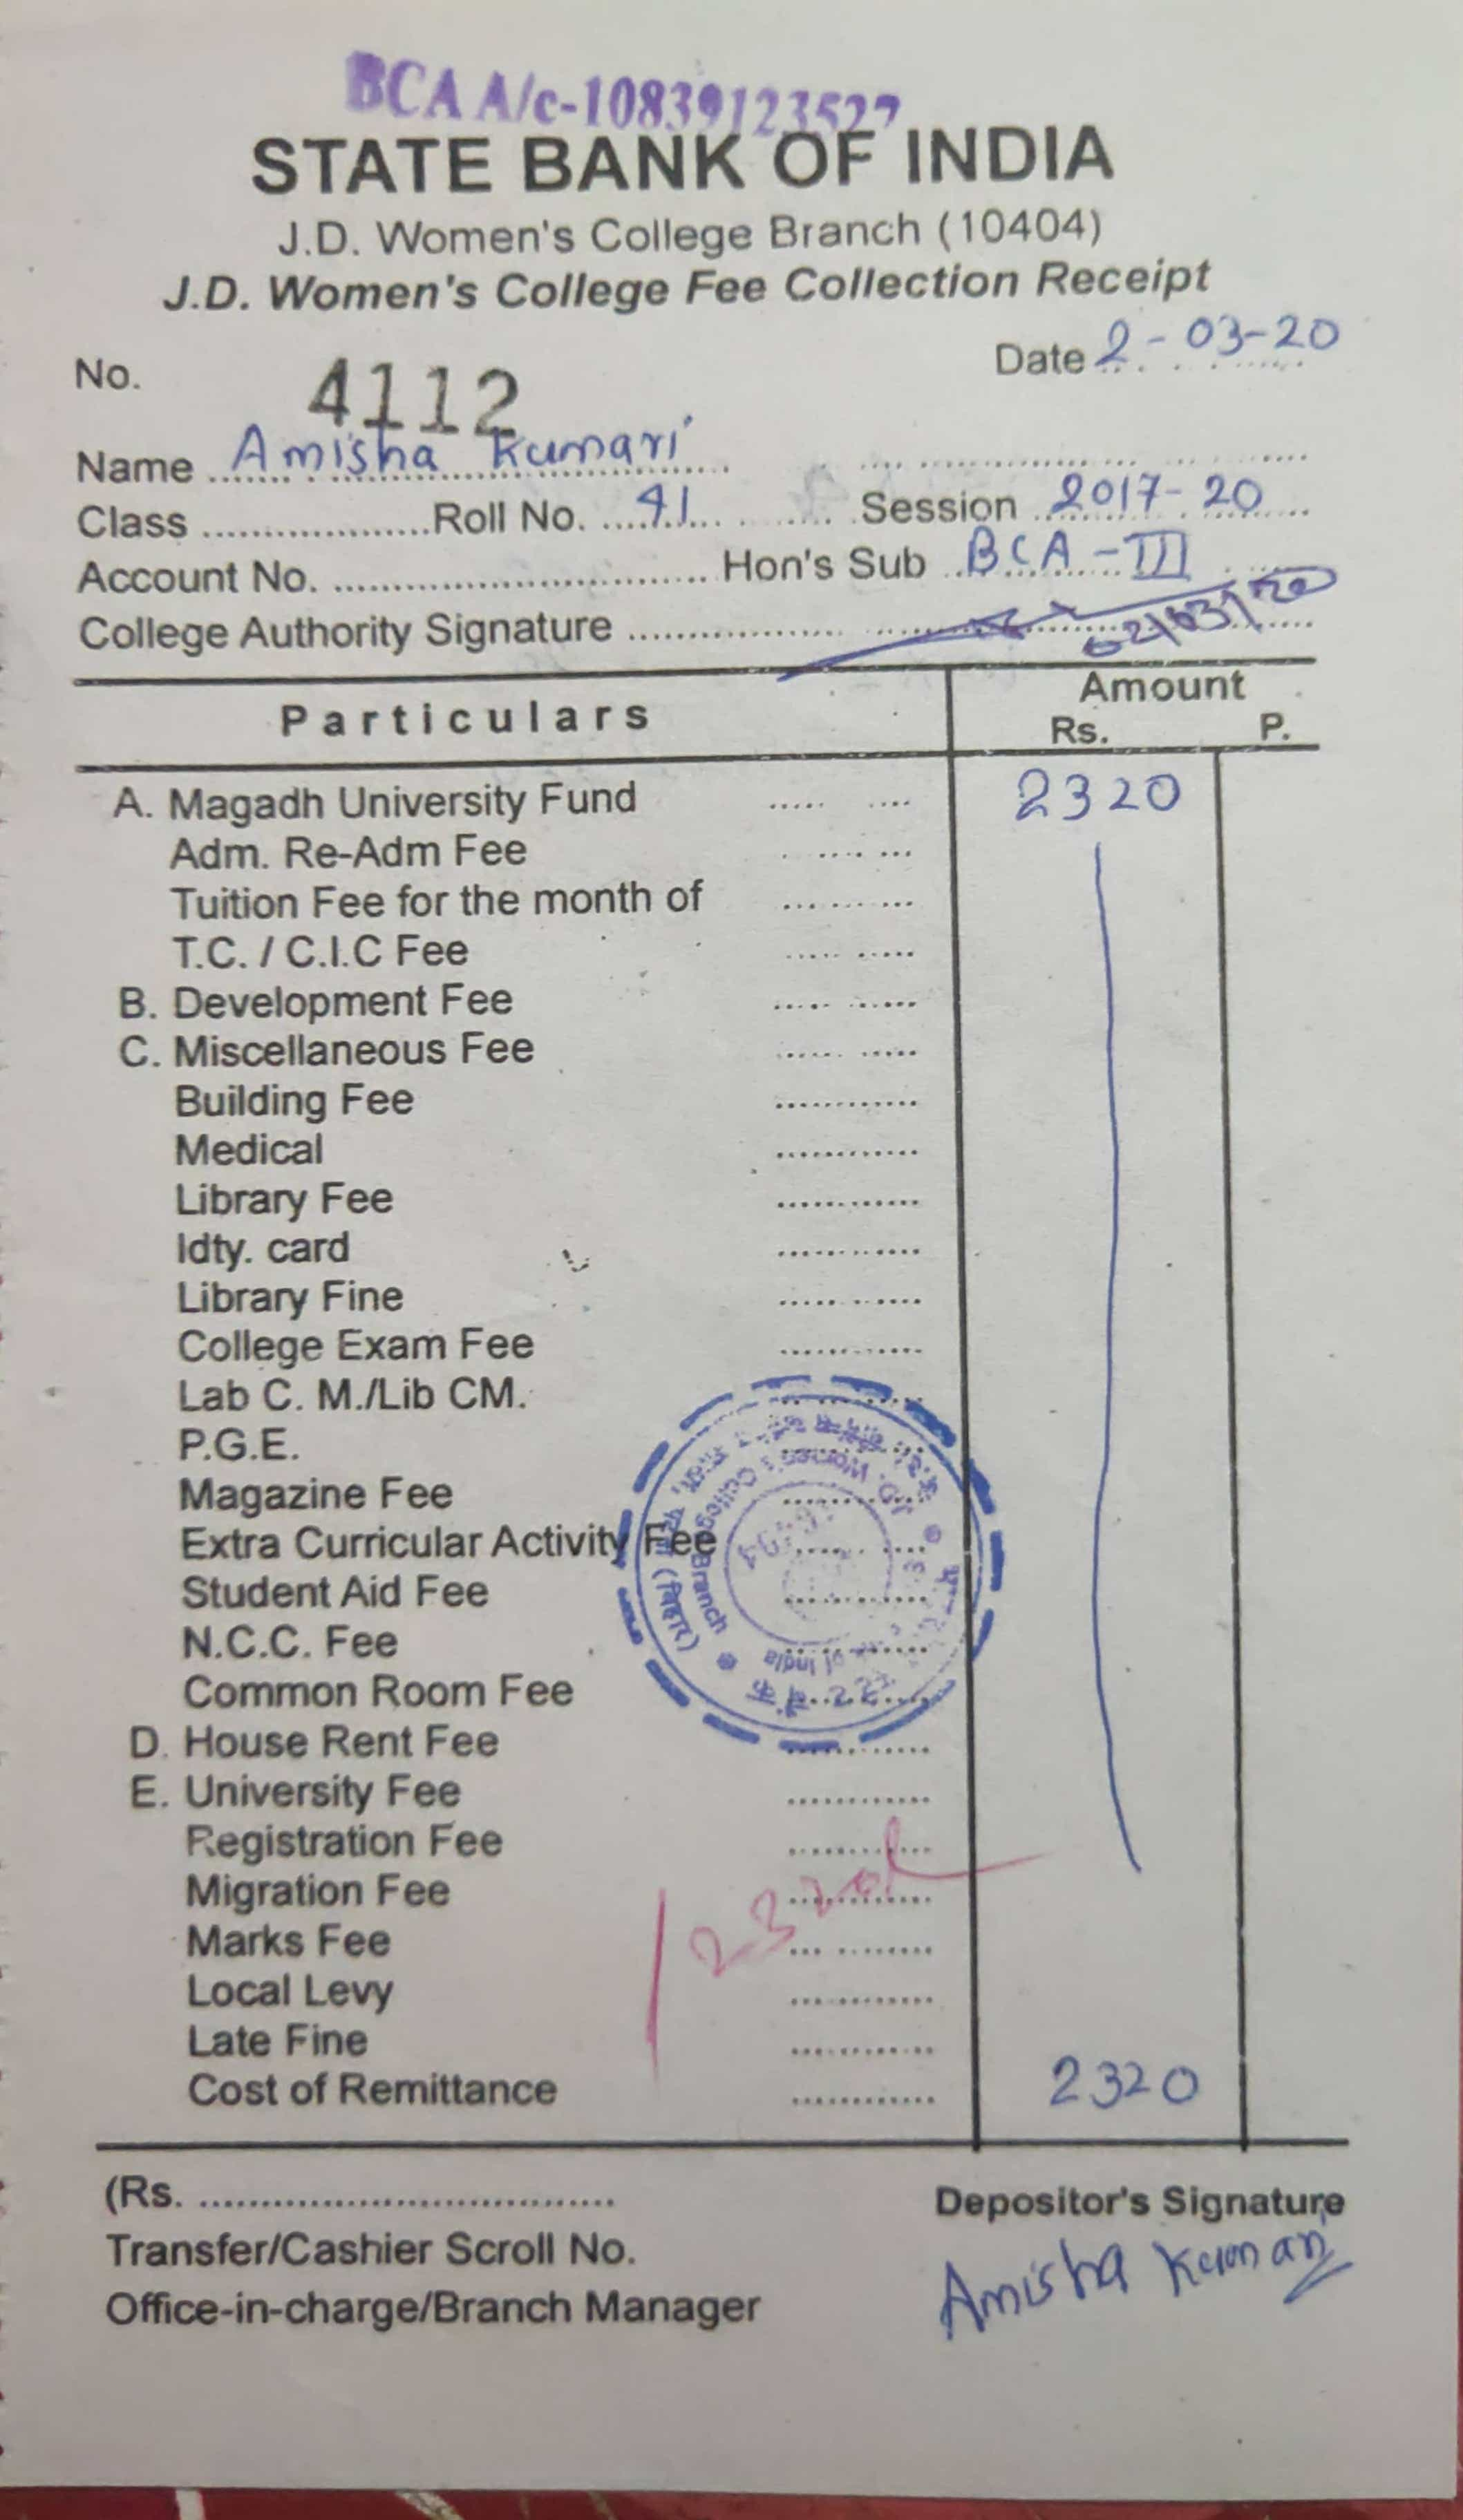 BCA A/c-10839123527
STATE BANK OF INDIA
J.D. Women's College Branch (10404)
J.D. Women's College Fee Collection Receipt
No. 4112 Date 2-03-20
Name Amisha Kumari
Class Roll No. 41 Session 2017-20
Account No. Hon's Sub BCA-III
College Authority Signature 02/03/20
Particulars Amount
Rs. P.
A. Magadh University Fund 2320
Adm. Re-Adm Fee
Tuition Fee for the month of
T.C. / C.I.C Fee
B. Development Fee
C. Miscellaneous Fee
Building Fee
Medical
Library Fee
Idty. card
Library Fine
College Exam Fee
Lab C. M./Lib CM.
P.G.E.
Magazine Fee
Extra Curricular Activity Fee
Student Aid Fee
N.C.C. Fee
Common Room Fee
D. House Rent Fee
E. University Fee
Registration Fee
Migration Fee
Marks Fee
Local Levy
Late Fine
Cost of Remittance 2320
2320
J.D. Women's College Branch
of India
(बिहार)
(Rs. Depositor's Signature
Transfer/Cashier Scroll No. Amisha Kumari
Office-in-charge/Branch Manager